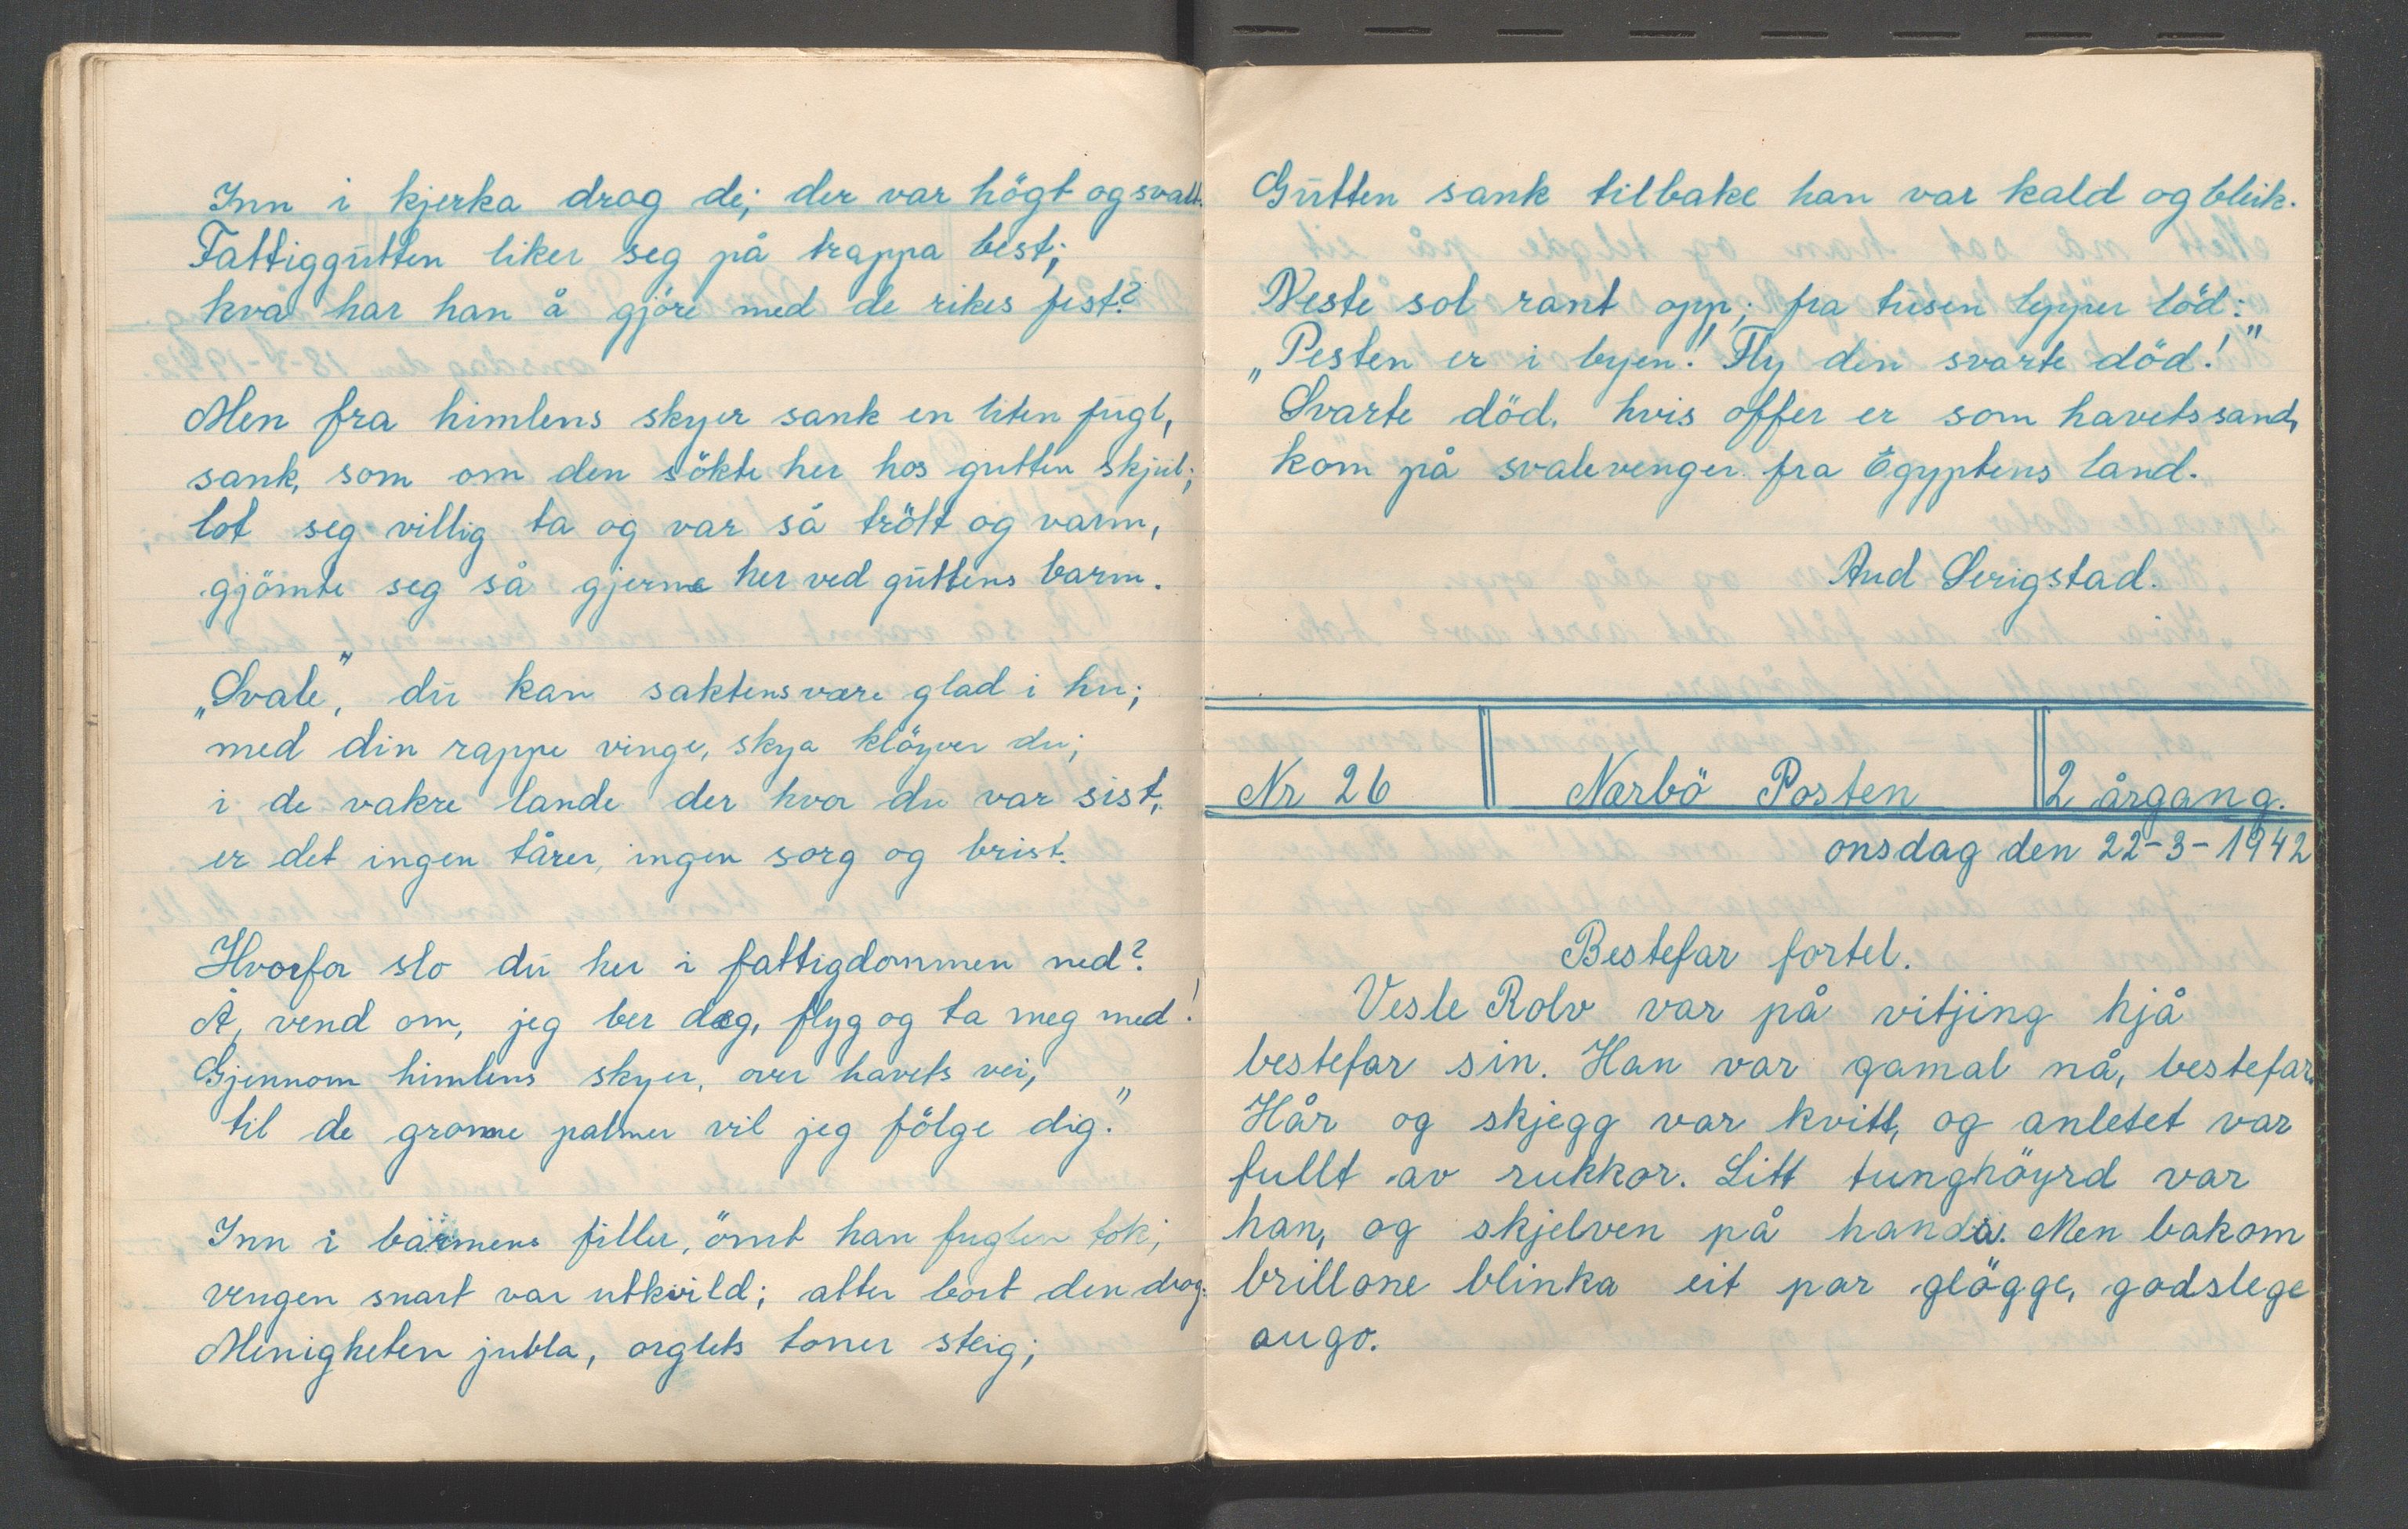 Inn i kjerka drog de; der var högt og svalt.
Fattiggutten liker seg på trappa best;
kva har han å gjöre med de rikes fest?
Men fra himlens skyer sank en liten fugl,
sank, som om den sökte her hos gutten skjul;
lot seg villig ta og var så trött og varm,
gjömte seg så gjerne her ved guttens barm.
„Svale", du kan saktens være glad i hu;
med din rappe vinge, skya klöyver du;
i de vakre lande der hvor du var sist,
er det ingen tårer, ingen sorg og brist.
Hvorfor slo du her i fattigdommen ned?
Å, vend om, jeg ber deg, flyg og ta meg med!
Gjennom himlens skyer, over havets vei,
til de grønne palmer vil jeg fölge dig."
Inn i barmens filler, ömt han fuglen tok;
vengen snart var utkvild; atter bort den drog.
Menigheten jubla, orglets toner steig;
Gutten sank tilbake han var kald og bleik.
Neste sol rant opp; fra tusen lepper löd:
„Pesten er i byen! Fly den svarte död!"
Svarte död, hvis offer er som havets sand,
kom på svalevenger fra Egyptens land.
Aud Serigstad.
Nr 26 Nærbö Posten 2 årgang.
onsdag den 22-3-1942
Bestefar fortel.
Vesle Rolv var på vitjing hjå
bestefar sin. Han var gamal nå, bestefar.
Hår og skjegg var kvitt, og anletet var
fullt av rukkor. Litt tunghöyrd var
han, og skjelven på handa. Men bakom
brillone blinka eit par glögge, godslege
augo.